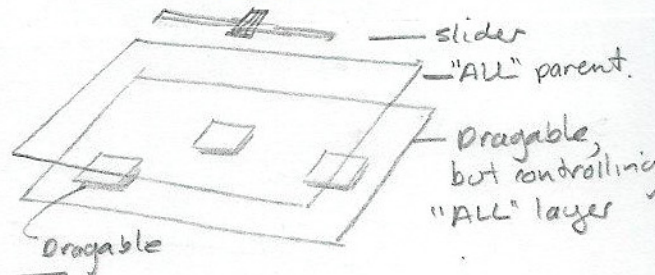 slider
"ALL" parent.
Dragable,
but controlling
"ALL" layer
Dragable